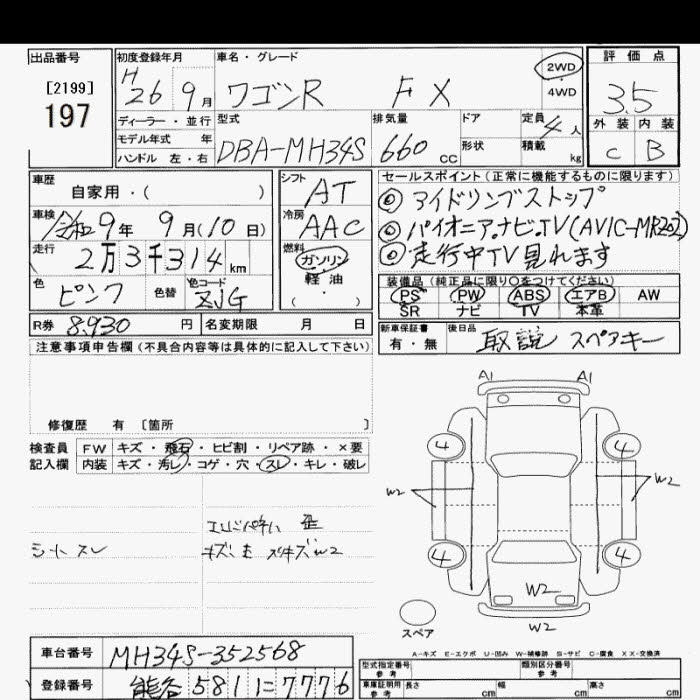 出品番号
[2199]
197
初度登録年月
H 26 9月
車名・グレード
ワゴンR FX
2WD
・
4WD
評価点
3.5
外装 内装
C B
ディーラー・並行
モデル年式 年
ハンドル 左・右
型式
DBA-MH34S
排気量
660 CC
ドア
形状
定員
4人
積載
kg
車歴
自家用・( )
車検
令和9年 9月(10日)
走行
2万3千314km
色
ピンク
色替
色コード
ZJG
シフト
AT
冷房
AAC
燃料
ガソリン
軽油
( ・ )
セールスポイント(正常に機能するものに限ります)
◎ アイドリングストップ
◎ パイオニアナビ.TV(AVIC-MRZ02)
◎ 走行中TV見れます
装備品(純正品に限り○をつけてください)
PS PW ABS エアB AW
SR ナビ TV 本革
R券 8,930 円 名変期限 月 日
新車保証書
有・無
後日品
取説 スペアキー
注意事項申告欄(不具合内容等は具体的に記入して下さい)
修復歴 有 〔箇所 〕
検査員
記入欄
FW キズ・飛石・ヒビ割・リペア跡・×要
内装 キズ・汚レ・コゲ・穴・スレ・キレ・破レ
シート スレ
A1 A1
4 4
W2 W2
4 4
W2
W2
スペア
A-キズ E-エクボ U-凹み W-補修跡 S-サビ C-腐食 XX-交換済
車台番号
MH34S-352568
登録番号
熊谷 581 に 7776
型式指定番号
参考
類別区分番号
参考
車庫証明用
参考
長さ cm 幅 cm 高さ cm